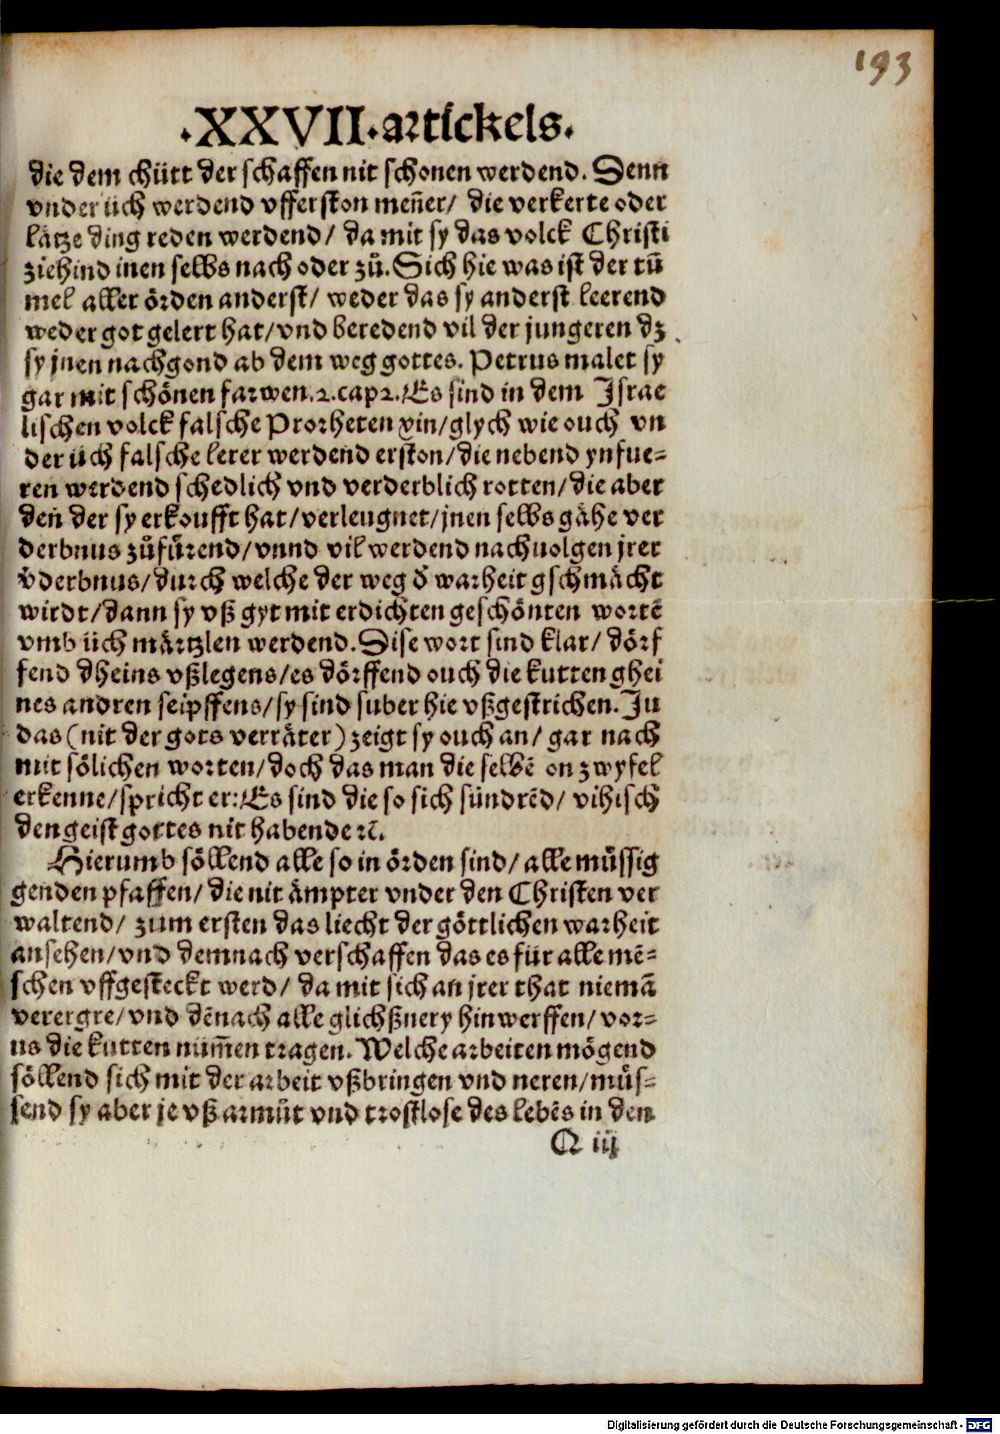 193
·XXVII·artickels·
die dem chütt der schaffen nit schonen werdend. Denn
vnder üch werdend vfferston men̄er/ die verkerte oder
lätze ding reden werdend/ da mit sy das volck Christi
ziehind inen selbs nach oder zů. Sich hie was ist der tům̄
mel aller örden anderst/ weder das sy anderst leerend
weder got gelert hat/ vnd beredend vil der jungeren dz
sy jnen nachgond ab dem weg gottes. Petrus malet sy
gar mit schönen farwen.2.cap2. Es sind in dem Israe
lischen volck falsche Prorheten xin/ glych wie ouch vn
der üch falsche lerer werdend erston/ die nebend ynfue-
ren werdend schedlich vnd verderblich rotten/ die aber
den̄ der sy erkoufft hat/ verleugnet/ jnen selbs gähe ver
derbnus zůfůrend/ vnnd vil werdend nachuolgen jrer
v̄derbnus/ durch welche der weg d̄ warheit gschmächt
wirdt/ dann sy vß gyt mit erdichten geschönten wortē
vmb üch märtzlen werdend. Dise wort sind klar/ dörf
fend dheins vßlegens/ es dörffend ouch die kutten ghei
nes andren seipffens/ sy sind suber hie vßgestrichen. Ju
das (nit der gots verräter) zeigt sy ouch an/ gar nach
mit sölichen worten/ doch das man die selbē on zwyfel
erkenne/ spricht er: Es sind die so sich sündrēd/ vihisch
den geist gottes nit habende ꝛc̄.
Hierumb söllend alle so in örden sind/ alle müssig
genden pfaffen/ die nit ämpter vnder den Christen ver
waltend/ zum ersten das liecht der göttlichen warheit
ansehen/ vnd demnach verschaffen das es für alle mē-
schen vffgesteckt werd/ da mit sich an jrer that niemā
verergre/ vnd dēnach alle glichßnery hinwerffen/ vor-
us die kutten num̄en tragen. Welche arbeiten mögend
söllend sich mit der arbeit vßbringen vnd neren/ müs-
send sy aber je vß armůt vnd trostlose des lebēs in den
Q iij
Digitalisierung gefördert durch die Deutsche Forschungsgemeinschaft - DFG